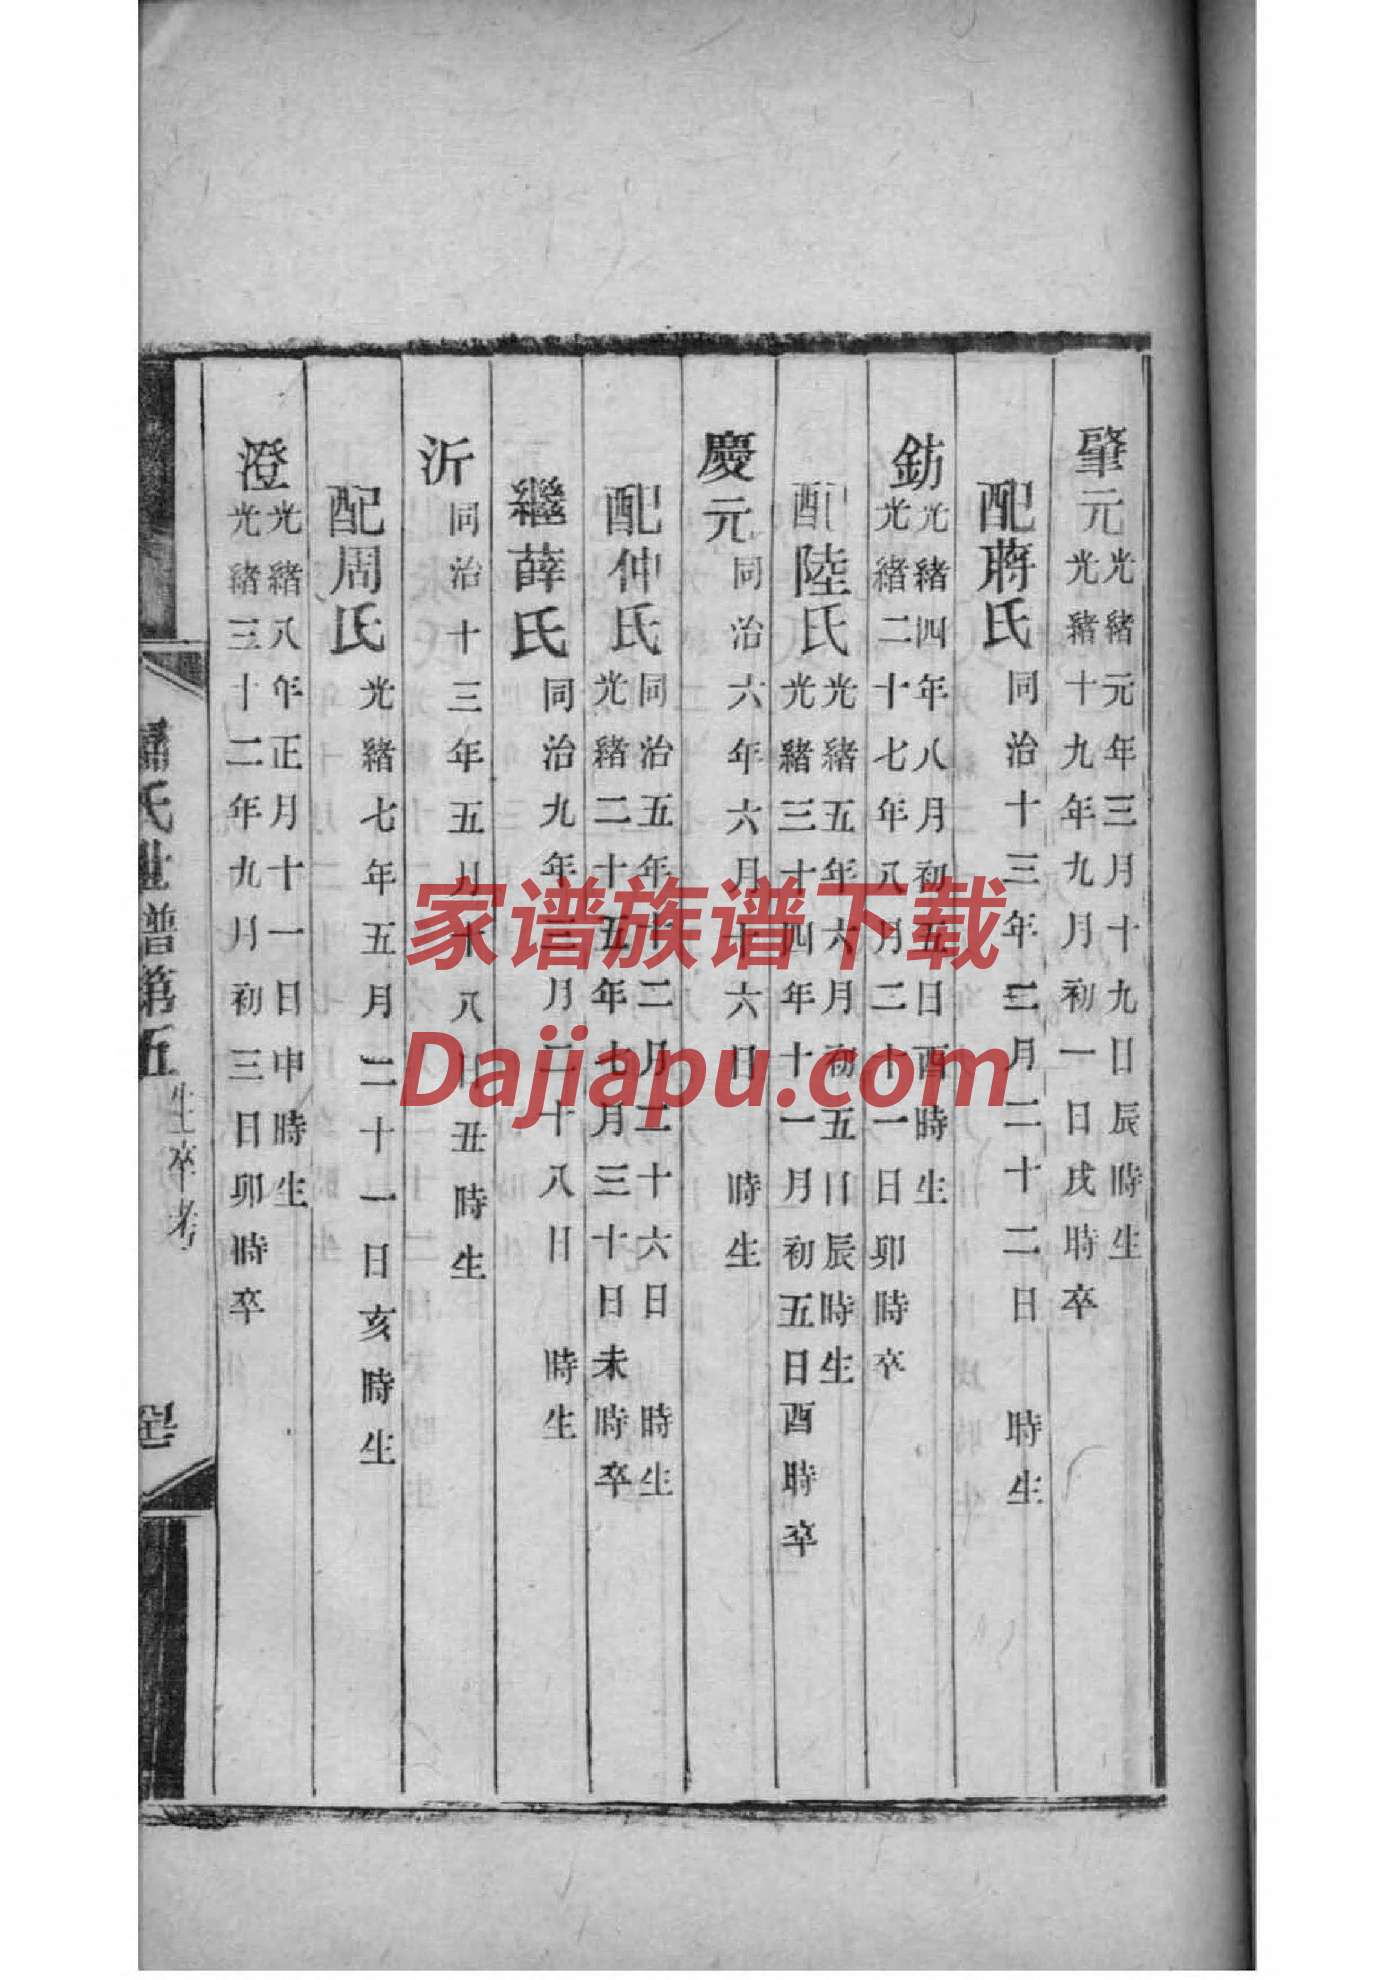 肇元
光緒元年三月十九日辰時生
光緒十九年九月初一日戌時卒
配蔣氏
同治十三年二月二十二日　時生
鈁
光緒四年八月初五日酉時生
光緒二十七年八月二十一日卯時卒
配陸氏
光緒五年六月初五日辰時生
光緒三十四年十一月初五日酉時卒
慶元
同治六年六月十六日　時生
配仲氏
同治五年十二月二十六日　時生
光緒二十五年七月三十日未時卒
繼薛氏
同治九年三月二十八日　時生
沂
同治十三年五月十八日丑時生
配周氏
光緒七年五月二十一日亥時生
澄
光緒八年正月十一日申時生
光緒三十二年九月初三日卯時卒
氏世譜第五
生卒考
家谱族谱下载
Dajiapu.com